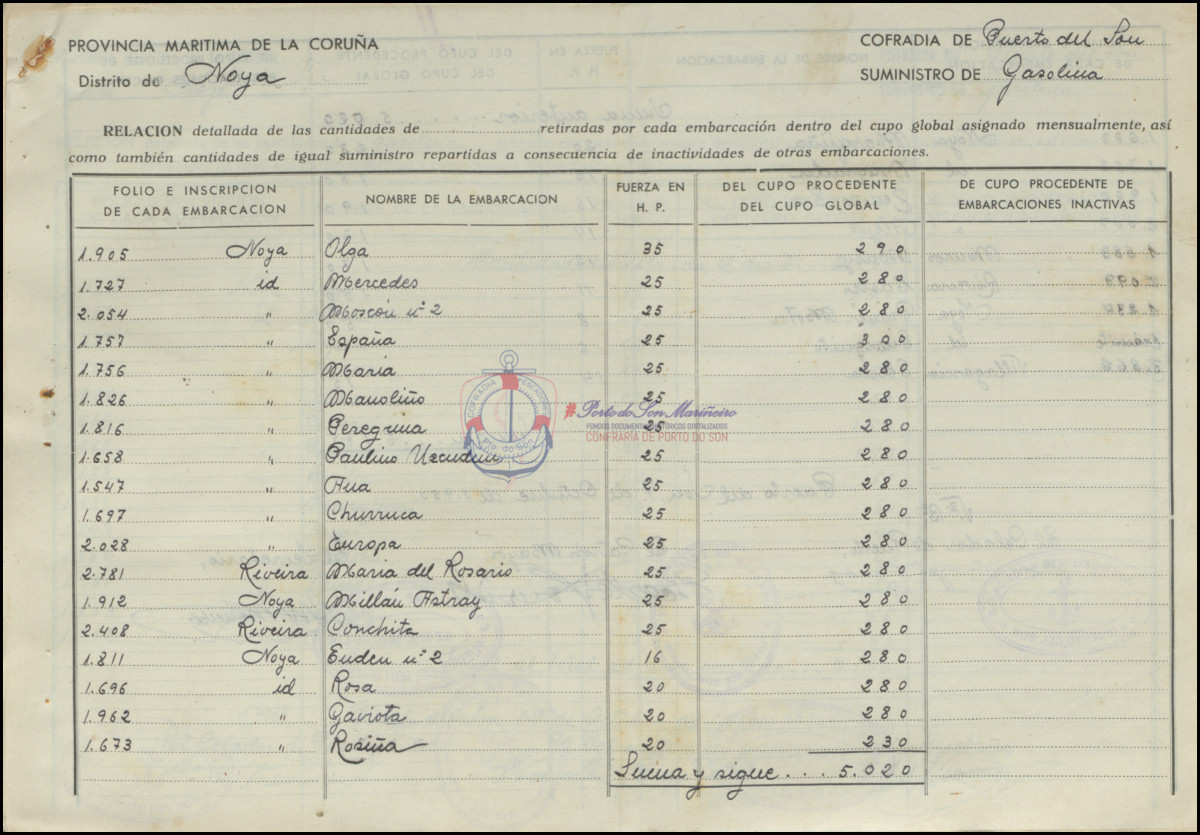 PROVINCIA MARITIMA DE LA CORUÑA
Distrito de Noya
COFRADIA DE Puerto del Son
SUMINISTRO DE Gasolina
RELACION detallada de las cantidades de retiradas por cada embarcación dentro del cupo global asignado mensualmente, así
como también cantidades de igual suministro repartidas a consecuencia de inactividades de otras embarcaciones.
FOLIO E INSCRIPCION DE CADA EMBARCACION NOMBRE DE LA EMBARCACION FUERZA EN H. P. DEL CUPO PROCEDENTE DEL CUPO GLOBAL DE CUPO PROCEDENTE DE EMBARCACIONES INACTIVAS
1.905 Noya Olga 35 290
1.727 id Mercedes 25 280
2.054 " Moscón nº 2 25 280
1.757 " España 25 300
1.756 " Maria 25 280
1.826 " Manoliño 25 280
1.816 " Peregrina 25 280
1.658 " Paulino Uzcudun 25 280
1.547 " Ana 25 280
1.697 " Churruca 25 280
2.028 " Europa 25 280
2.781 Riveira Maria del Rosario 25 280
1.912 Noya Millán Astray 25 280
2.408 Riveira Conchita 25 280
1.811 Noya nº 2 16 280
1.696 id Rosa 20 280
1.962 " Gaviota 20 280
1.673 " Rosiña 20 230
Suma y sigue... 5.020
COFRADIA PESCADORES
Pto. do Son
#Porto do Son Mariñeiro
FONDOS DOCUMENTAIS HISTÓRICOS DIGITALIZADOS
CONFRARÍA DE PORTO DO SON